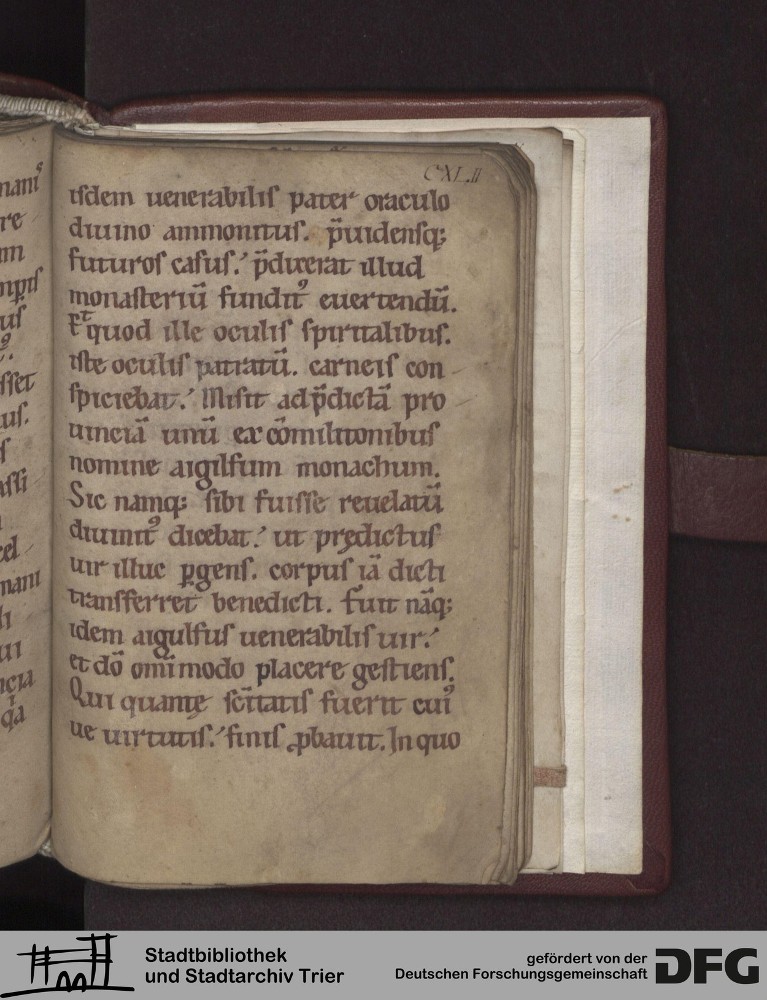 CXLII
isdem uenerabilis pater oraculo
diuino ammonitus. p̄uidensq;
futuros casus. p̄dixerat illud
monasteriū fundit᷒ euertendū.
Et quod ille oculis spiritalibus.
iste oculis patratū. carneis con
spiciebat. Misit ad p̄dictā pro
uinciā unū ex cōmilitonibus
nomine aigilfum monachum.
Sic namq; sibi fuisse reuelatū
diuinit᷒ dicebat. ut prędictus
uir illuc ꝑgens. corpus iā dicti
transferret benedicti. Fuit nāq;
idem aigulfus uenerabilis uir.
et dō omīmodo placere gestiens.
Qui quantę sc̄itatis fuerit cui᷒
ue uirtutis. finis ꝓbauit. In quo
nant᷒
re
mptis
us
sset
us.
s
asti
cel
nani
li
ui
ncia
Stadtbibliothek
und Stadtarchiv Trier
gefördert von der
Deutschen Forschungsgemeinschaft
DFG